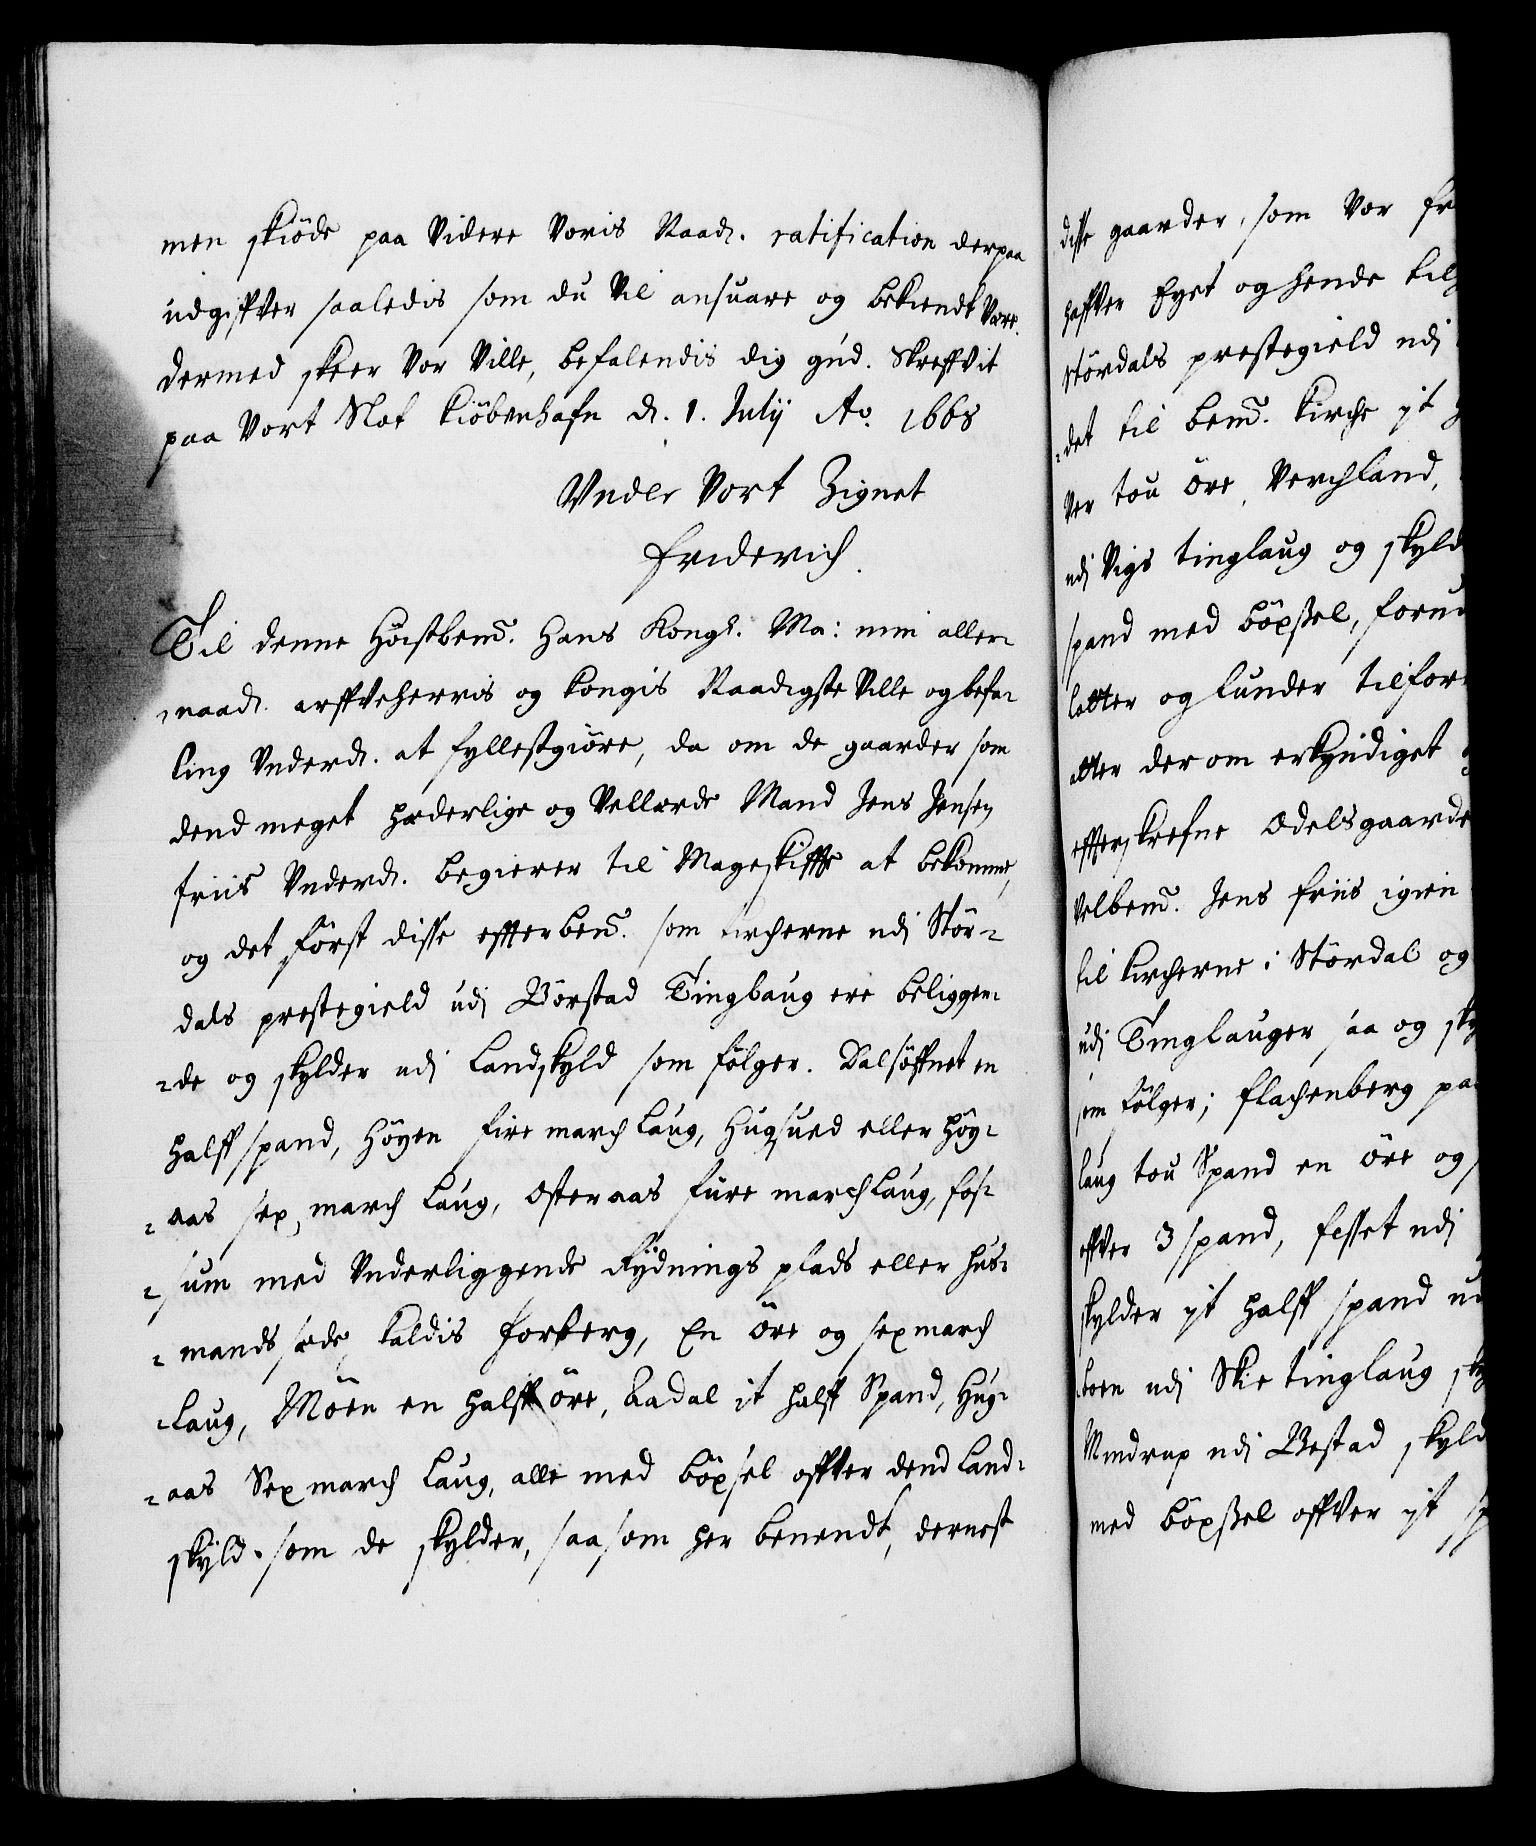 men skiöde paa Videre Voris Naad. ratification derpaa
udgiffver saaledis som du Vil ansuare og bekiendt Vare.
dermed skeer Vor Ville, befalendis dig gud. Skreffvit
paa Vort Slot Kiöbenhafn d. 1. Julij Ao. 1668
Vnder Vort Zignet
Friderich.
Til denne Höistbemt. Hans Kongl. Ma: min aller-
naad. arffveherris og Kongis Naadigste Ville og befa-
ling Vnderd. at fyllestgiöre, da om de gaarder som
dend meget hæderlige og Vellærde Mand Jens Jensen
friis Vnderd. begierer til Mageskiffte at bekomme,
og det först disse effterbemt. som Kircherne udj Stör-
dals prestegield udj Börstad Tinglaug ere beliggen-
-de og skylder udj Landskyld som fölger. Dalsöffnet en
halff spand, Höyen fire march Laug, Hugsued eller Höy-
-aas sex march Laug, Osteraas fure march Laug, fos-
-sum med Vnderliggende Rydnings plads eller hus-
-mands sæde kaldis Forberg, En öre og sex march
-Laug, Möen en halff öre, Aadal it halff Spand, Hug-
-aas Sex march Laug, alle med böxsel offver dend Land-
skyld som de skylder, saasom her benendt, dernest
disse gaarder, som Vor
haffver Eyet og hende
Stördals prestegield udj
-det til bemt. Kirche yt
Ver tou öre, Verchland,
udj Vigs tinglaug og skyld
spand med böxssel,
letter og Lunder
atter der om erkyndiget
effterskrefne Odelsgaarde
Velbemt. Jens friis igien
til Kircherne i Stördal og
udj Tinglauger saa og
som fölger; Flachenberg
laug tou Spand en öre og
offver 3 spand, fesset udj
skylder yt halff spand
udj Skie tinglaug
udj Bestad
med böxssel offver yt